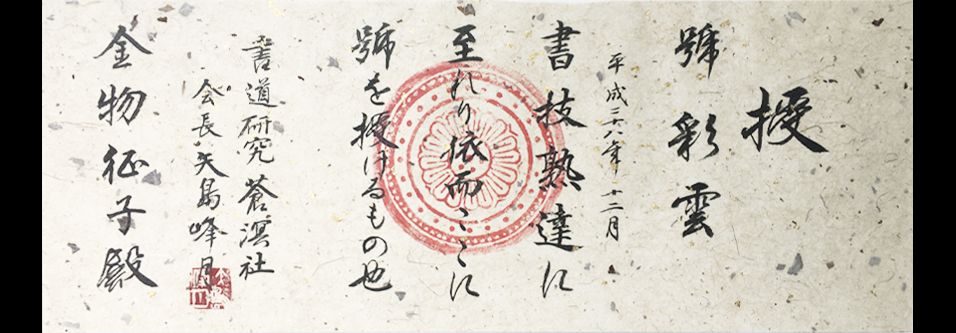 授
號 彩雲
平成二十八年十二月
書技熟達に
至れり依而こゝに
號を授けるもの也
書道研究 蒼溟社
会長 矢島峰月
金物征子殿